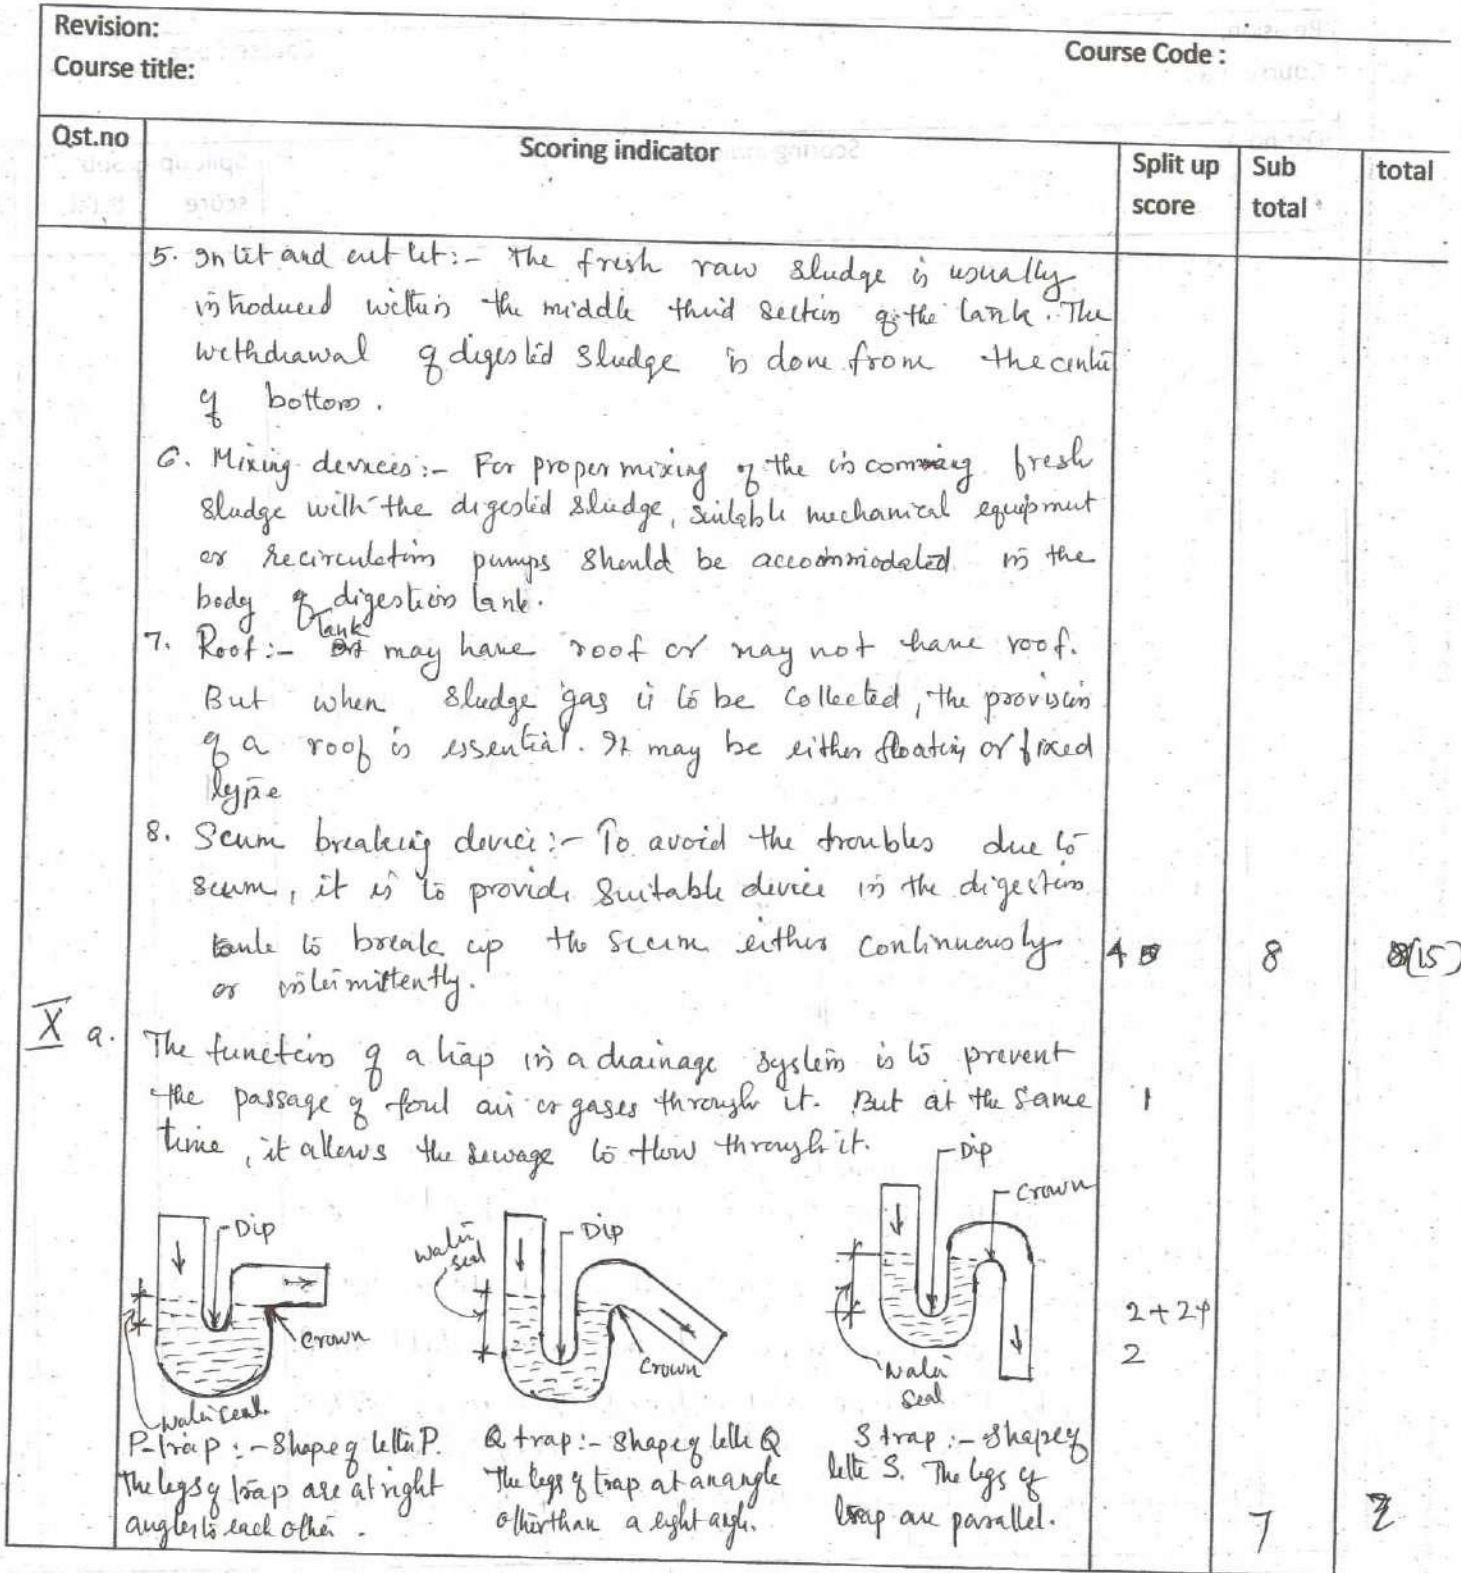 Revision:
Course Code :
Course title:
Qst.no
Scoring indicator
Split up score
Sub total
total
5. Inlet and outlet:- The fresh raw sludge is usually
introduced within the middle third section of the tank. The
withdrawal of digested sludge is done from the centre
of bottom.
6. Mixing devices:- For proper mixing of the incoming fresh
sludge with the digested sludge, suitable mechanical equipment
or recirculation pumps should be accommodated in the
body of digestion tank.
7. Roof:- Tank may have roof or may not have roof.
But when sludge gas is to be collected, the provision
of a roof is essential. It may be either floating or fixed
type
8. Scum breaking device:- To avoid the troubles due to
scum, it is to provide suitable device in the digestion
tank to break up the scum either continuously
or intermittently.
4
8
(15)
X a. The function of a trap in a drainage system is to prevent
the passage of foul air or gases through it. But at the same
1
time, it allows the sewage to flow through it.
Dip
Crown
Water seal
Dip
Crown
Water seal
Dip
Crown
Water seal
2+2+
2
P-trap :- Shape of letter P.
The legs of trap are at right
angles to each other.
Q trap:- Shape of letter Q
The legs of trap at an angle
other than a right angle.
S trap :- Shape of
letter S. The legs of
trap are parallel.
7